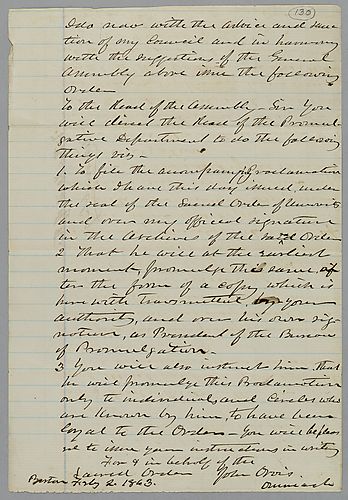 130
I do now with the advice and sanc
tion of my Council and in harmony
with the suggestion of the General
Assembly above issue the following
Order
To the Head of the Assembly - Sir You
will direct the Head of the Promul
gative Department to do the following
things viz -
1. To file the accompanying Proclamation
which I have this day issued, under
the seal of the Sacred Order of Unionists
and over my official signature
in the Archives of the said Order
2 That he will at the earliest
moment, promulge the same, af
ter the form of a copy which is
herewith transmitted, by your
authority, and over his own sig
nature, as President of the Bureau
of Promulgation.
3 You will also instruct him that
he will promulge this Proclamation
only to individuals and Circles who
are known by him, to have been
loyal to the Order - You will be pleas
ed to issue your instructions in writing
For & in behalf of the
Sacred Order John Orvis
Boston Feby 2. 1863.